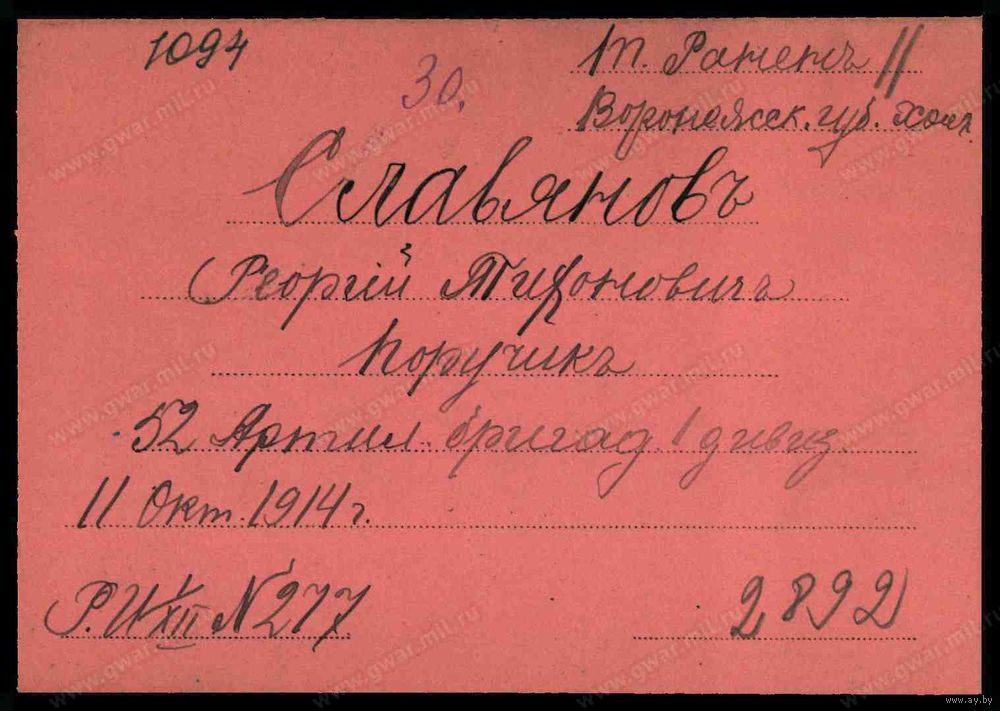 1094
30.
т. Раненъ 11
Воронежск. губ. холп
Славяновъ
Георгій Тихоновичъ
Поручикъ
52 Артил. бригад. 1 дивиз.
11 Окт. 1914 г.
Р.И. V/XII №277
2892
www.gwar.mil.ru
www.ay.by